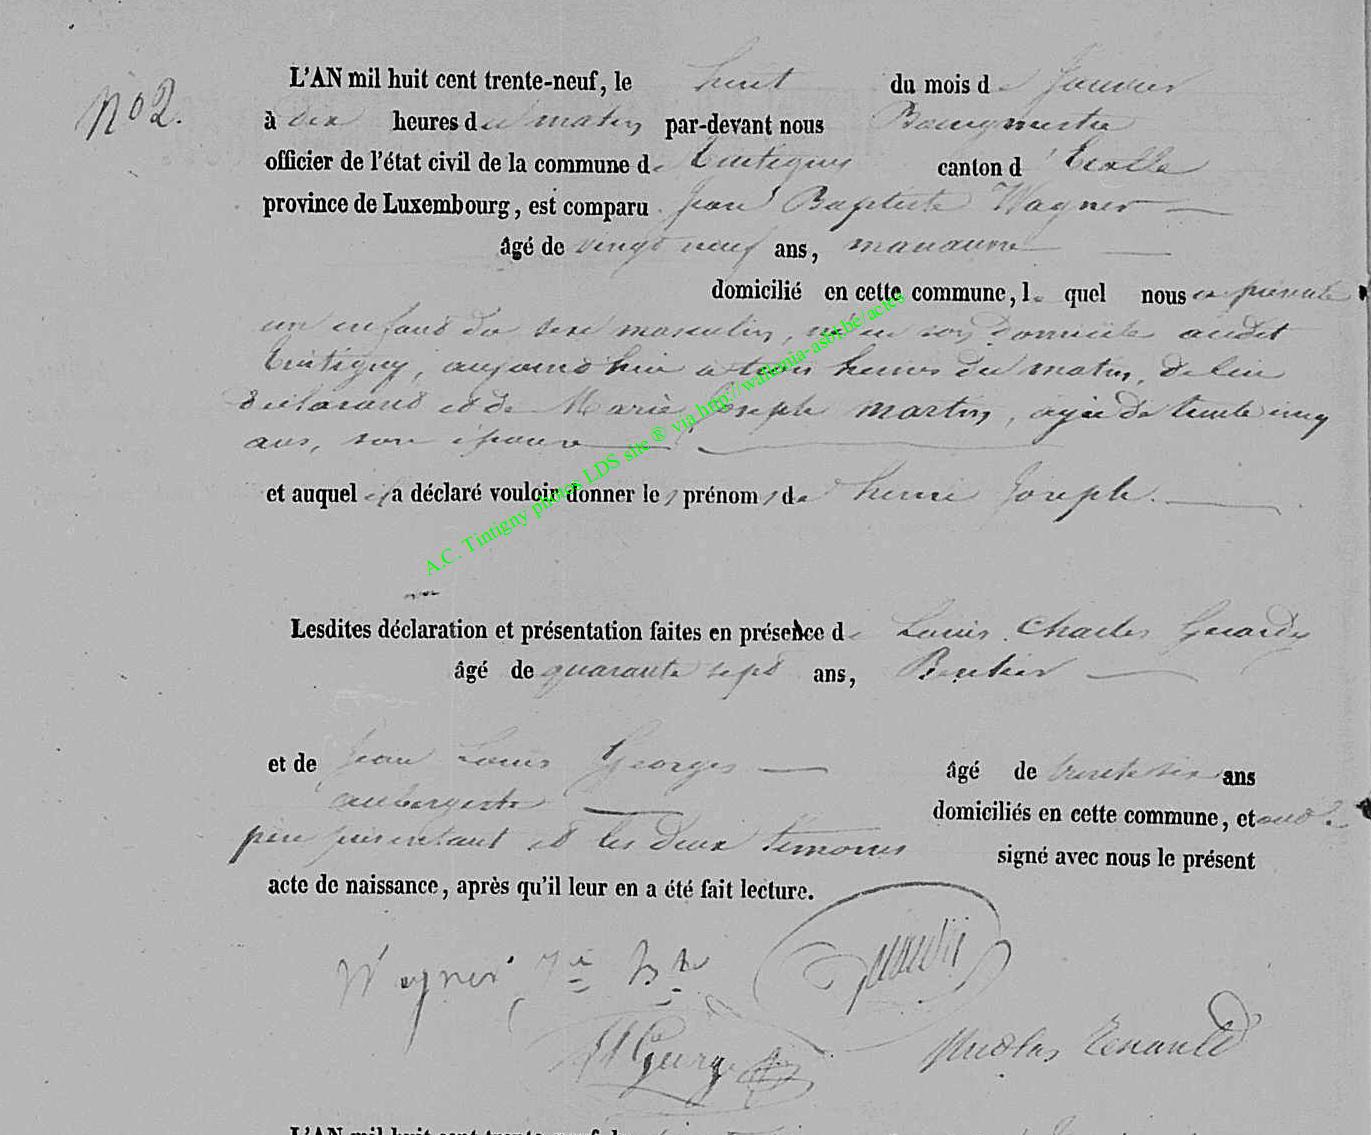 No 2.
L'AN mil huit cent trente-neuf, le huit du mois de Janvier
à dix heures du matin par-devant nous Bourgmestre
officier de l'état civil de la commune de Tintigny canton d'Etalle
province de Luxembourg, est comparu Jean Baptiste Wagner
âgé de vingt neuf ans, manœuvre
domicilié en cette commune, le quel nous a présenté
un enfant du sexe masculin, né en son domicile audit
Tintigny, aujourd'hui à trois heures du matin, de lui
déclarant et de Marie Joseph Martin, agée de trente cinq
ans, son épouse
et auquel il a déclaré vouloir donner les prénoms de henri Joseph.
Lesdites déclaration et présentation faites en présence de Louis Charles Gerardy
âgé de quarante sept ans, Rentier
et de Jean Louis Georges âgé de trente six ans
aubergiste domiciliés en cette commune, et ont
père présentant et les deux témoins signé avec nous le présent
acte de naissance, après qu'il leur en a été fait lecture.
Wagner
Georges Nicolas Renauld
L'AN mil huit cent trente-neuf, le
A.C. Tintigny photos LDS site ® via http://wallonia-asbl.be/actes